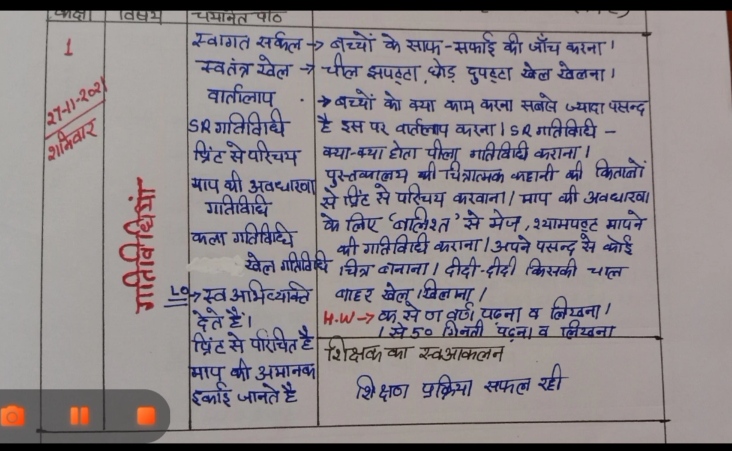 कक्षा विषय चयनित पाठ
1
27-11-2021
शनिवार
गतिविधियां
स्वागत सर्कल → बच्चों के साफ-सफाई की जाँच करना।
स्वतंत्र खेल → चील झपट्टा, घोड़ दुपट्टा खेल खेलना।
वार्तालाप → बच्चों को क्या काम करना सबसे ज्यादा पसन्द
SR गतिविधि है इस पर वार्तालाप करना। SR गतिविधी -
प्रिंट से परिचय क्या-क्या होता पीला गतिविधी कराना।
माप की अवधारणा पुस्तकालय की चित्रात्मक कहानी की किताबों
गतिविधि से प्रिंट से परिचय करवाना। माप की अवधारणा
कला गतिविधि के लिए 'बालिश्त' से मेज, श्यामपट्ट मापने
खेल गतिविधि की गतिविधी कराना। अपने पसन्द से कोई
चित्र बनाना। दीदी-दीदी किसकी चाल
LO → स्व अभिव्यक्ति बाहर खेल खिलाना।
देते हैं। H.W → क से ण वर्ण पढना व लिखना।
प्रिंट से परिचित है 1 से 50 गिनती पढ़ना व लिखना
माप की अमानक शिक्षक का स्वआकलन
इकाई जानते है शिक्षण प्रक्रिया सफल रही